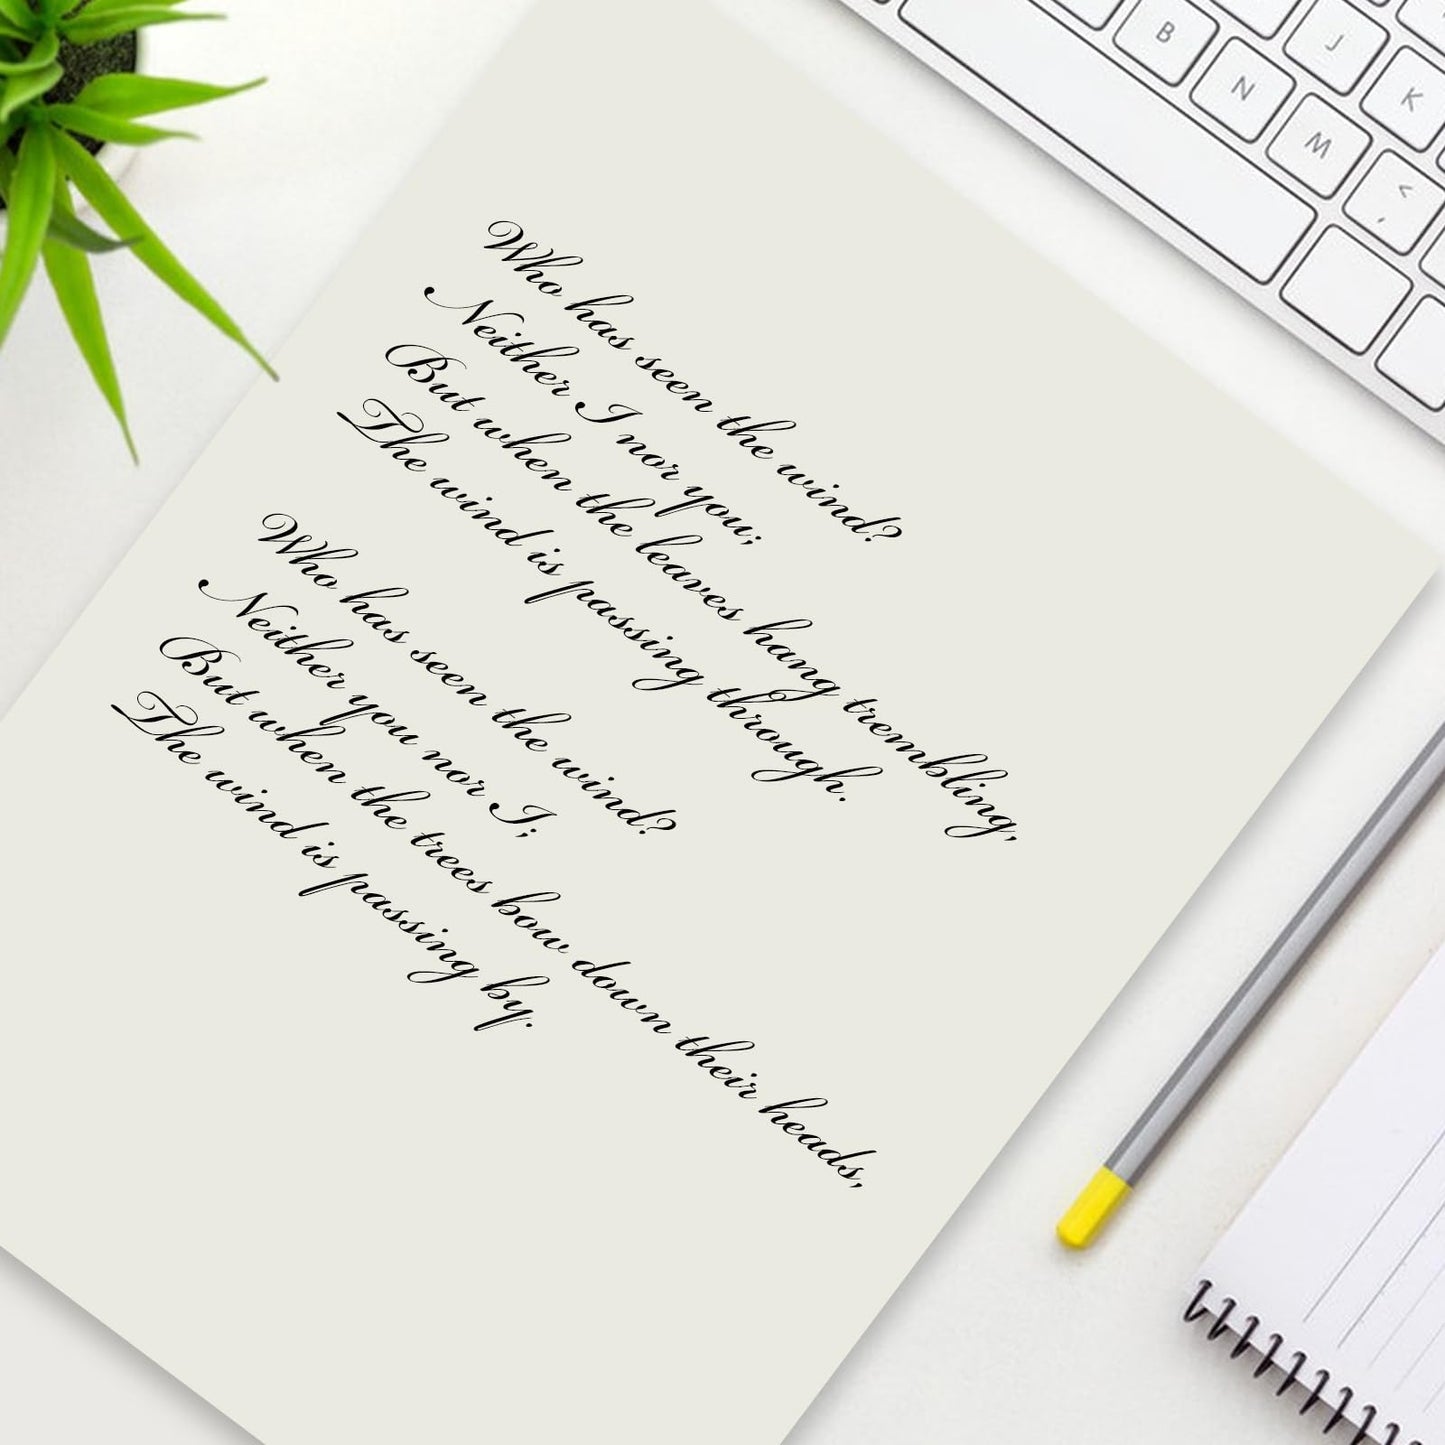 Who has seen the wind?
Neither I nor you;
But when the leaves hang trembling,
The wind is passing through.
Who has seen the wind?
Neither you nor I;
But when the trees bow down their heads,
The wind is passing by.
B
N
M
J
K
<
,